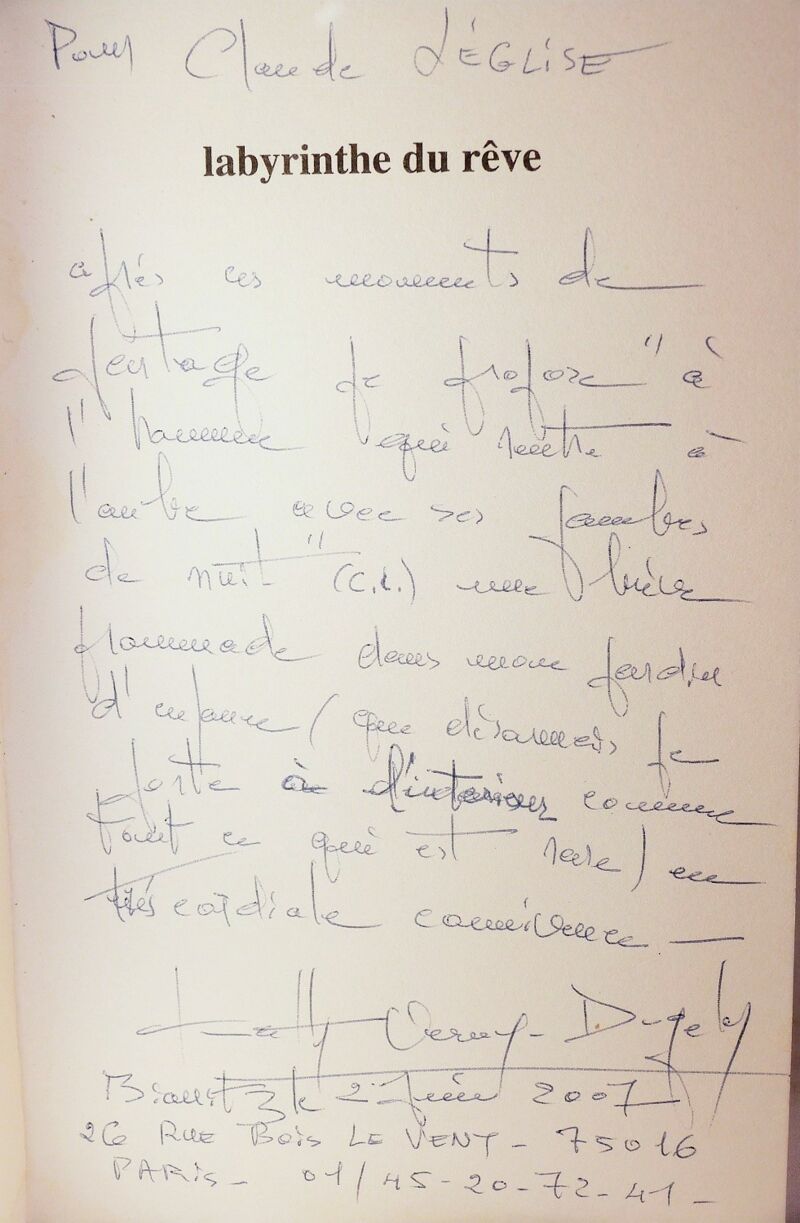 Pour Claude LÉGLISE
labyrinthe du rêve
après ces moments de
partage je propose "à
l'homme qui rentre à
l'aube avec ses jambes
de nuit" (C.L.) une brève
promenade dans mon jardin
d'enfance (que désormais je
porte à l'intérieur comme
tout ce qui est rare) en
très cordiale connivence —
Verny-Dugely
Biarritz le 2 Juin 2007
26 RUE BOIS LE VENT - 75016
PARIS - 01/45-20-72-41 -